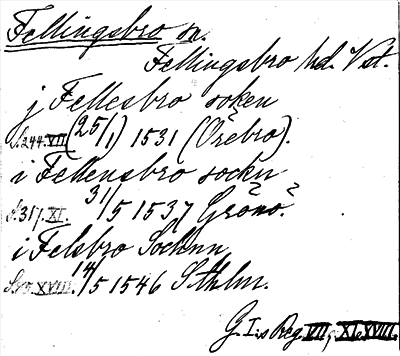 Fellingsbro sn.
Fellingsbro hd. Vst.
j Fellesbro soken
S.244.VII. (25/1) 1531 (Örebro).
i Fellensbro sockn
S.317.XI. 31/5 1537 Grönö.
i Felsbro Sochnn
XVIII. 14/5 1546 Sthlm.
G. I:s Reg. VII, XI, XVIII.